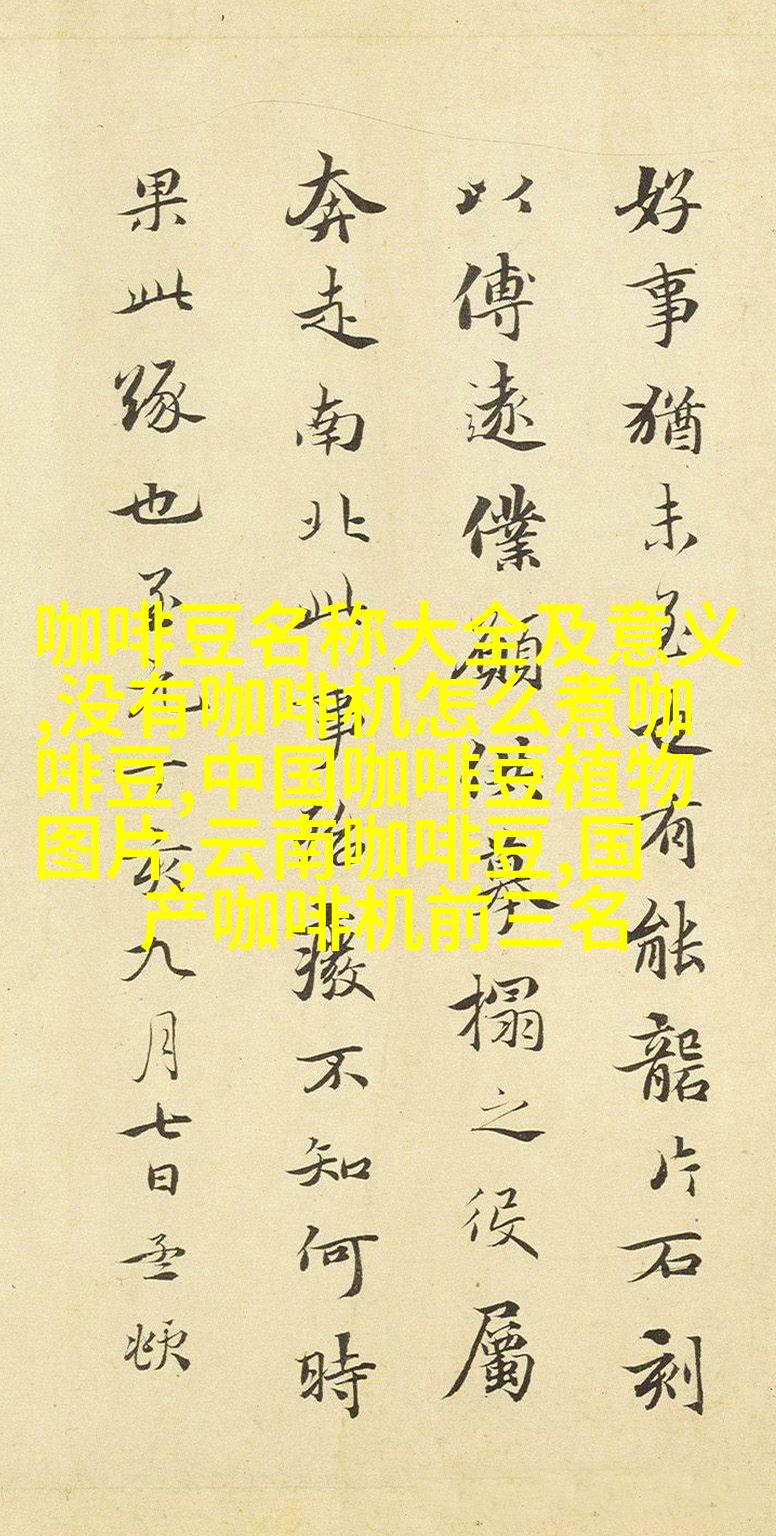 好事猶未至也有能礱片石刻
以傳遠僕願供摹搨之役屬
奔走南北此事殆廢不知何時
果此緣也至元丁亥九月七日孟頫
咖啡豆名称大全及意义
,没有咖啡机怎么煮咖
啡豆,中国咖啡豆植物
图片,云南咖啡豆,国
产咖啡机前三名